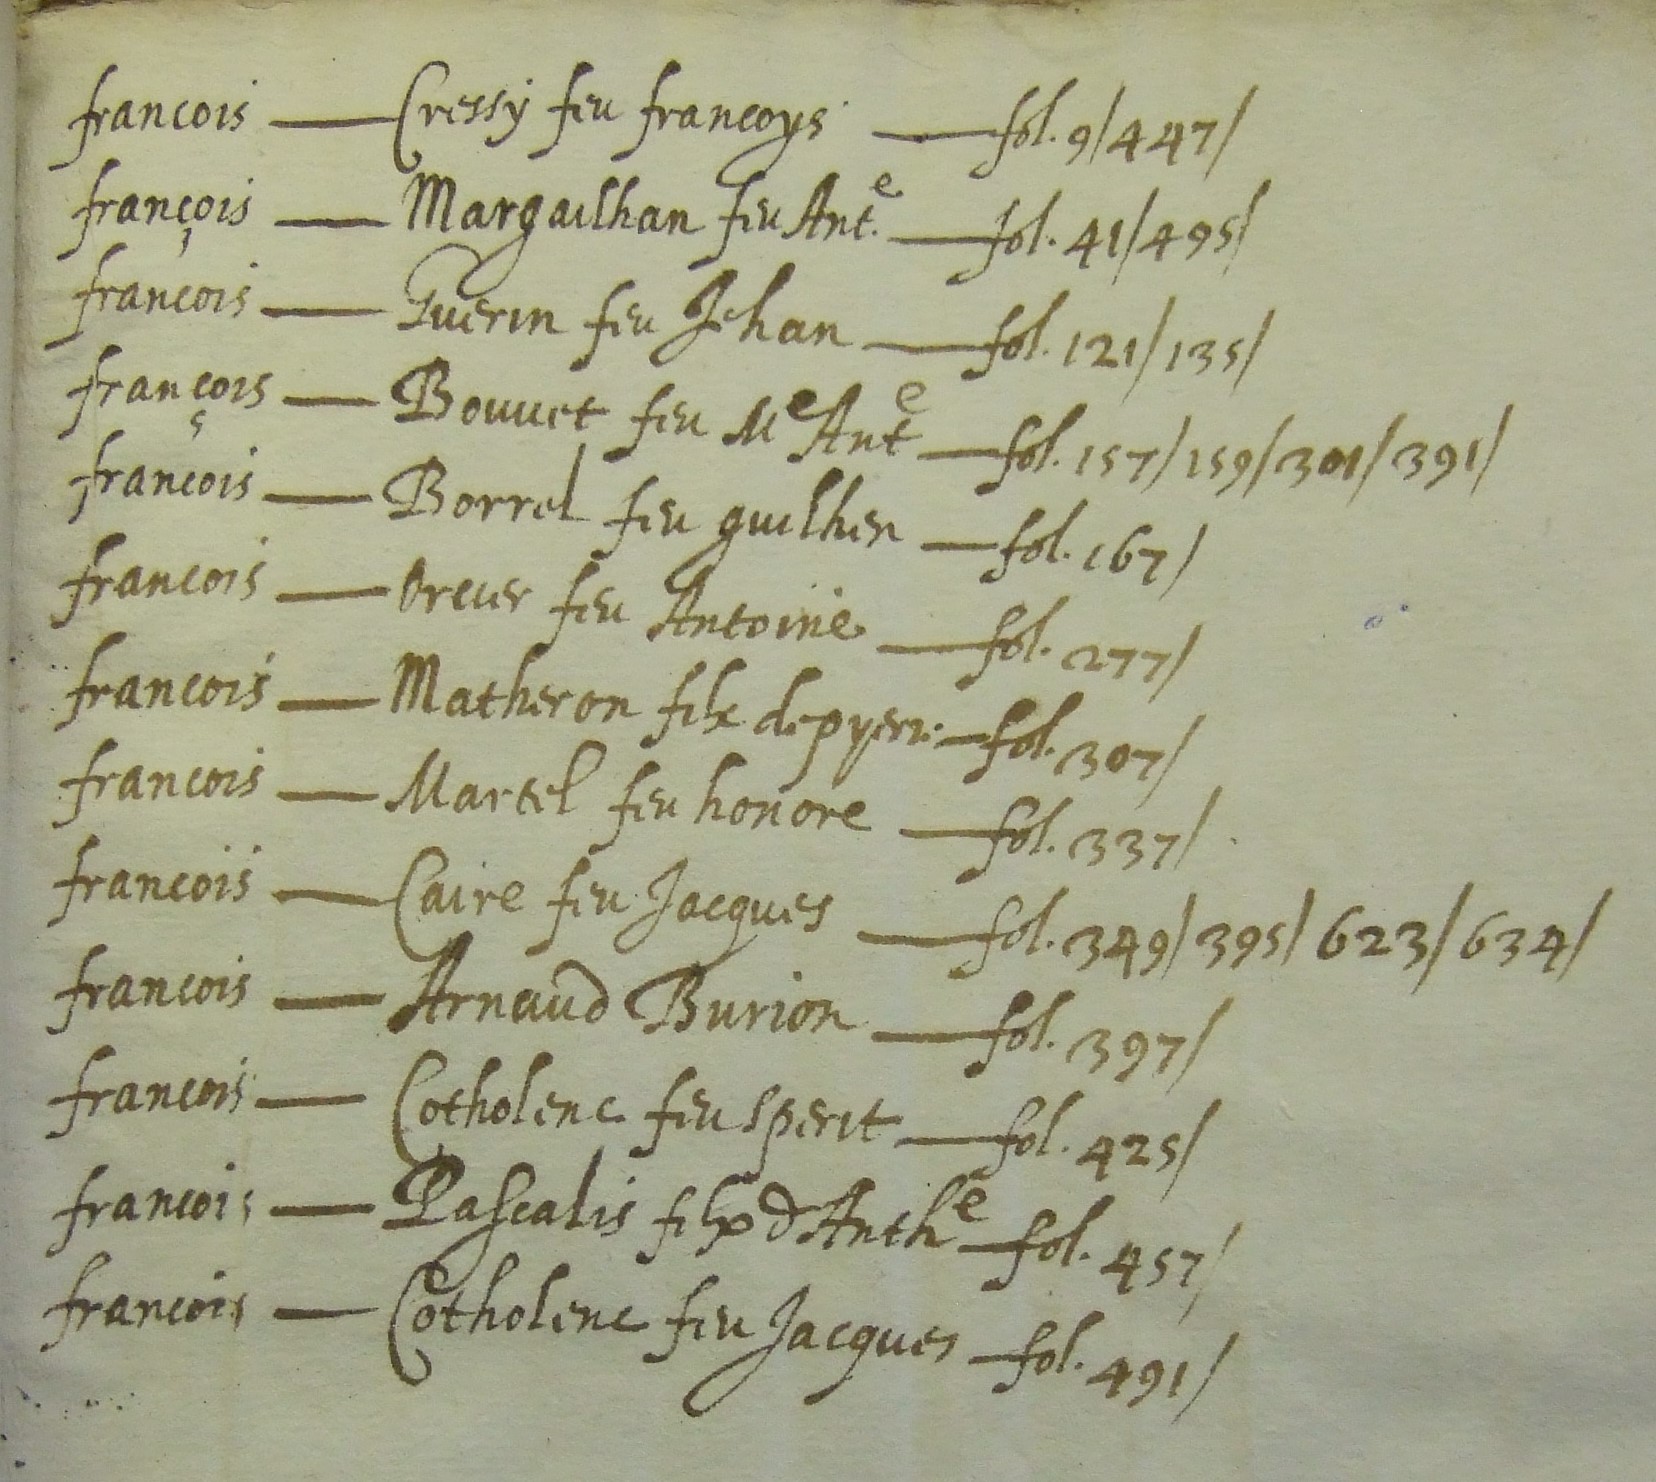 francois — Cressy feu francoys — fol. 9/447/
françois — Margailhan feu Ant.e — fol. 41/495/
francois — Guerin feu Jehan — fol. 121/135/
françois — Bouvet feu Me Ante — fol. 157/159/301/391/
francois — Borrel feu guilhen — fol. 167/
francois — Drever feu Antoine — fol. 277/
francois — Matheron filx de pyerre — fol. 307/
francois — Martel feu honore — fol. 337/
francois — Caire feu Jacques — fol. 349/395/623/634/
francois — Arnaud Burion — fol. 397/
francois — Cotholenc feu sperit — fol. 425/
francois — Pascalis filx d Anthe — fol. 457/
francois — Cotholenc feu Jacques — fol. 491/